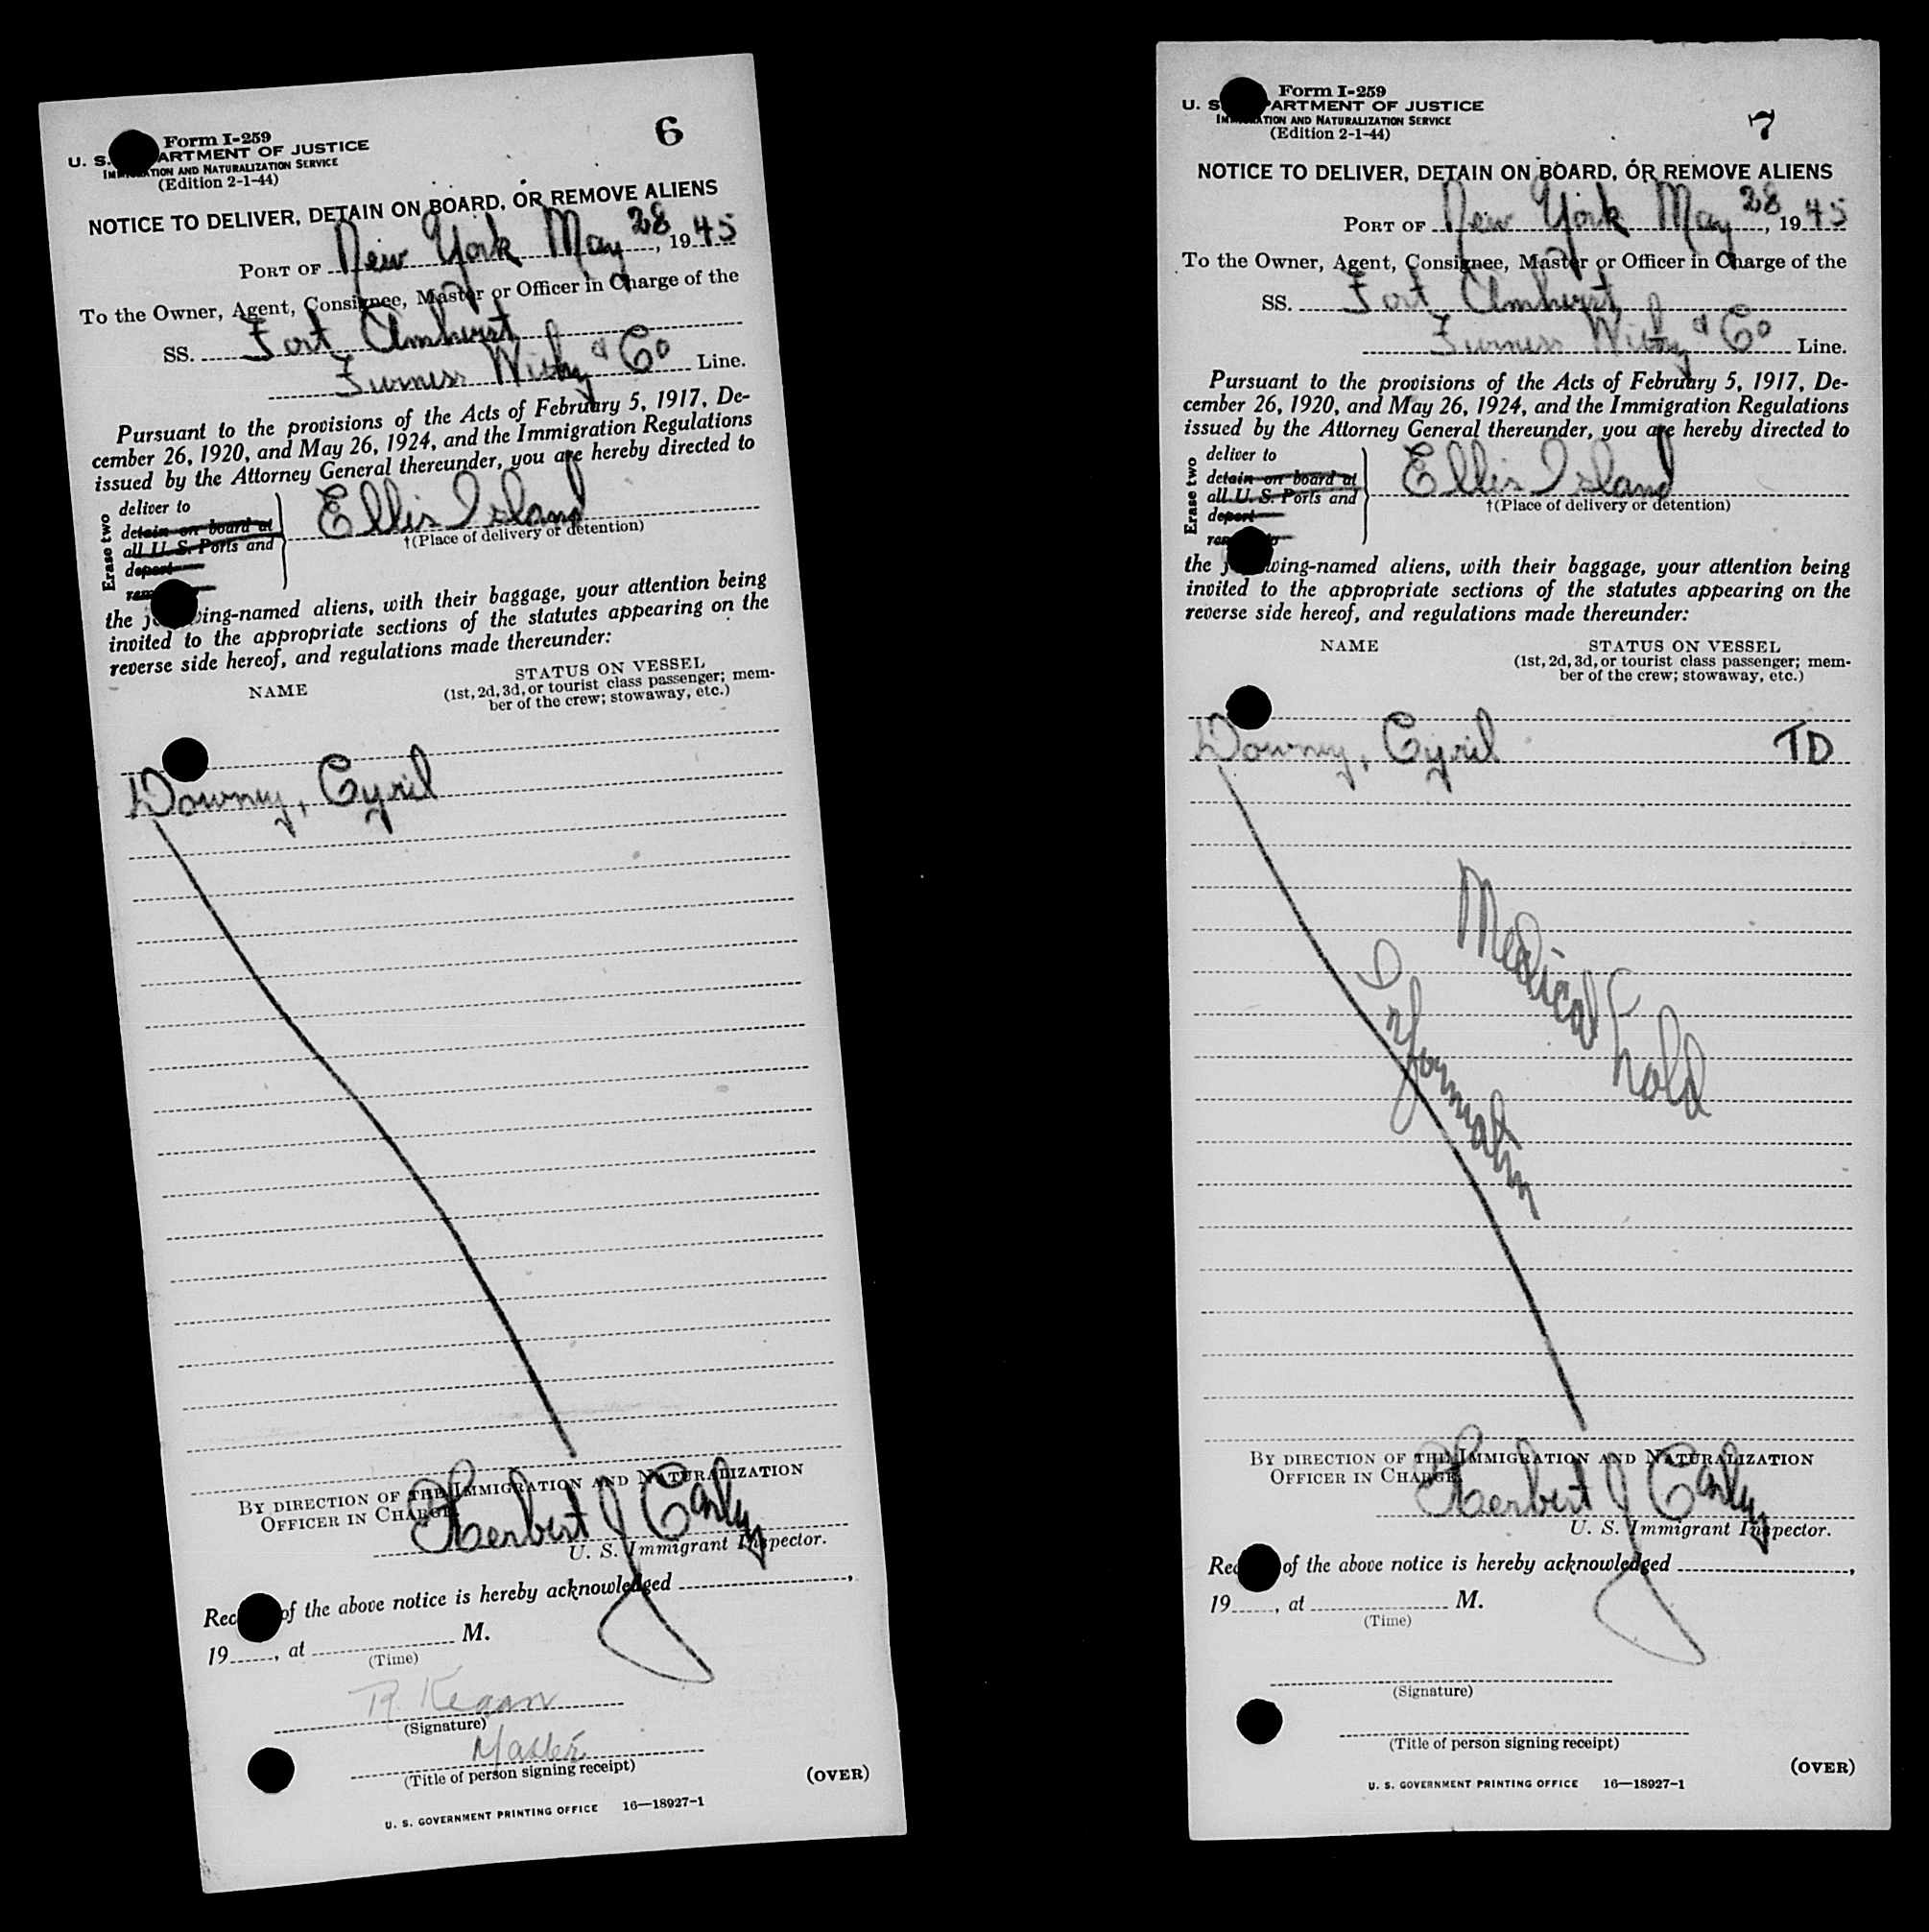 6
Form I-259
U. S. ARTMENT OF JUSTICE
IMM TION AND NATURALIZATION SERVICE
(Edition 2-1-44)
NOTICE TO DELIVER, DETAIN ON BOARD, OR REMOVE ALIENS
PORT OF New York May 28, 1945
To the Owner, Agent, Consignee, Master or Officer in Charge of the
SS. Fort Amherst
Furness Withy & Co Line.
Pursuant to the provisions of the Acts of February 5, 1917, De-
cember 26, 1920, and May 26, 1924, and the Immigration Regulations
issued by the Attorney General thereunder, you are hereby directed to
Erase two
deliver to
detain on board at
all U. S. Ports and
deport
Ellis Island
†(Place of delivery or detention)
the wing-named aliens, with their baggage, your attention being
invited to the appropriate sections of the statutes appearing on the
reverse side hereof, and regulations made thereunder:
NAME
STATUS ON VESSEL
(1st, 2d, 3d, or tourist class passenger; mem-
ber of the crew; stowaway, etc.)
Downy, Cyril
BY DIRECTION OF THE IMMIGRATION AND NATURALIZATION
OFFICER IN CHARGE
Herbert J Early
U. S. Immigrant Inspector.
Rec of the above notice is hereby acknowledged ,
19 , at M.
(Time)
R. Kegan
(Signature)
Master
(Title of person signing receipt)
(OVER)
U. S. GOVERNMENT PRINTING OFFICE 16—18927-1
7
Form I-259
U. S. PARTMENT OF JUSTICE
IM ATION AND NATURALIZATION SERVICE
(Edition 2-1-44)
NOTICE TO DELIVER, DETAIN ON BOARD, OR REMOVE ALIENS
PORT OF New York May 28, 1945
To the Owner, Agent, Consignee, Master or Officer in Charge of the
SS. Fort Amherst
Furness Withy & Co Line.
Pursuant to the provisions of the Acts of February 5, 1917, De-
cember 26, 1920, and May 26, 1924, and the Immigration Regulations
issued by the Attorney General thereunder, you are hereby directed to
Erase two
deliver to
detain on board at
all U. S. Ports and
deport
Ellis Island
†(Place of delivery or detention)
the wing-named aliens, with their baggage, your attention being
invited to the appropriate sections of the statutes appearing on the
reverse side hereof, and regulations made thereunder:
NAME
STATUS ON VESSEL
(1st, 2d, 3d, or tourist class passenger; mem-
ber of the crew; stowaway, etc.)
Downy, Cyril TD
Medical hold
Information
BY DIRECTION OF THE IMMIGRATION AND NATURALIZATION
OFFICER IN CHARGE
Herbert J Early
U. S. Immigrant Inspector.
Rec of the above notice is hereby acknowledged ,
19 , at M.
(Time)
(Signature)
(Title of person signing receipt)
(OVER)
U. S. GOVERNMENT PRINTING OFFICE 16—18927-1